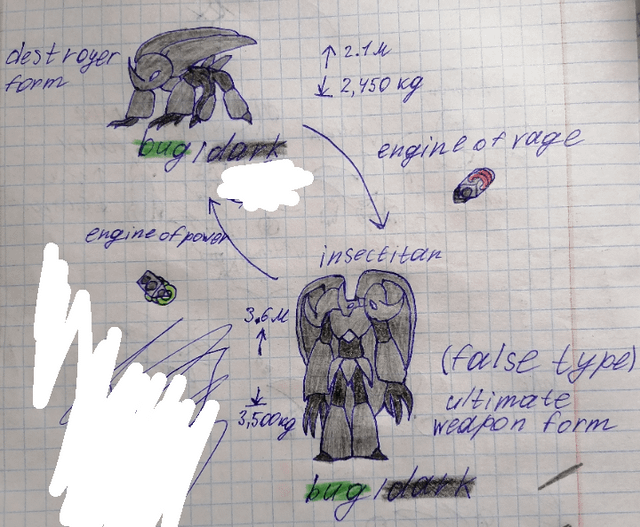 destroyer
form
↑ 2.1 м
↓ 2,450 kg
bug/dark
engine of rage
engine of power
insectitan
3.6 м
↑
↓
3,500kg
(false type)
ultimate
weapon form
bug/dark